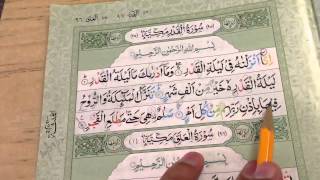 سُورَةُ الْقَدْرِ مَكِّيَّةٌ
بِسْمِ اللَّهِ الرَّحْمَٰنِ الرَّحِيمِ
إِنَّا أَنْزَلْنَاهُ فِي لَيْلَةِ الْقَدْرِ وَمَا أَدْرَاكَ مَا لَيْلَةُ الْقَدْرِ
لَيْلَةُ الْقَدْرِ خَيْرٌ مِنْ أَلْفِ شَهْرٍ تَنَزَّلُ الْمَلَائِكَةُ وَالرُّوحُ
فِيهَا بِإِذْنِ رَبِّهِمْ مِنْ كُلِّ أَمْرٍ سَلَامٌ هِيَ حَتَّى مَطْلَعِ الْفَجْرِ
سُورَةُ الْعَلَقِ مَكِّيَّةٌ